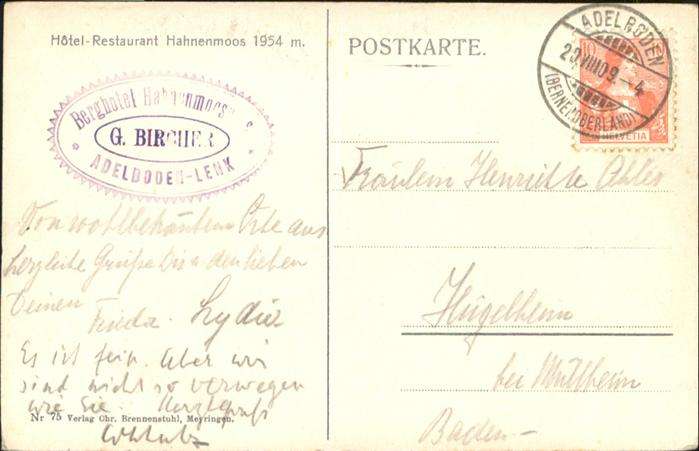 Hôtel-Restaurant Hahnenmoos 1954 m.
Berghotel Hahnenmoos
G. BIRCHER
ADELBODEN-LENK
Von wohlbekanntem Orte aus
herzliche Grüße Dir u. den lieben
Deinen
Frieda. Lydia
Es ist fein. Aber wir
sind nicht so verwegen
wie Sie. Herzl. Gruß
Nr 75 Verlag Chr. Brennenstuhl, Meyringen.
POSTKARTE.
ADELBODEN
(BERNER OBERLAND)
HELVETIA
Fräulein Henriette
Hügelheim
bei Müllheim
Baden-